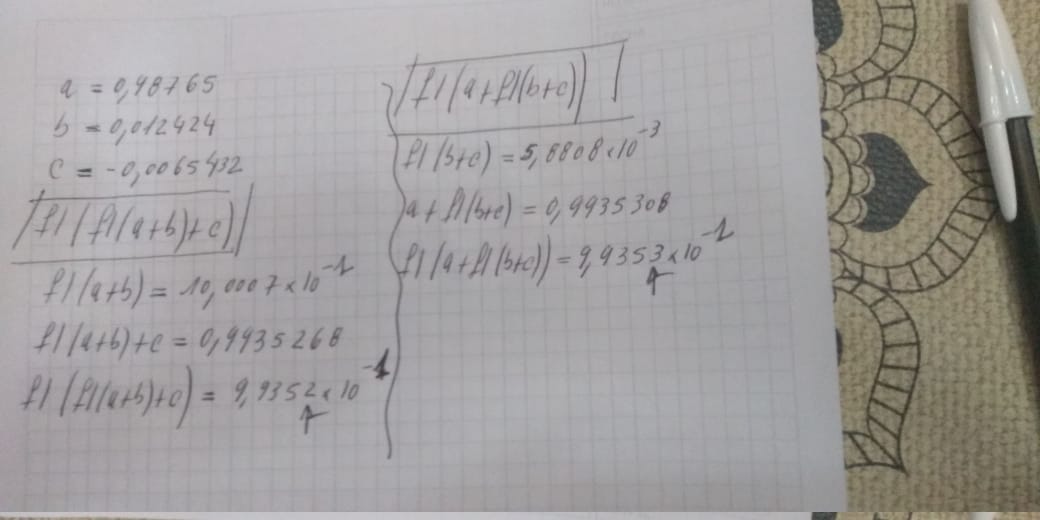 a = 0,98765
b = 0,012424
c = -0,0065432
fl(fl(a+b)+c)
fl(a+b) = 10,0007×10⁻¹
fl(a+b)+c = 0,9935268
fl(fl(a+b)+c) = 9,9352×10⁻¹
fl(a+fl(b+c))
fl(b+c) = 5,8808×10⁻³
a+fl(b+c) = 0,9935308
fl(a+fl(b+c)) = 9,9353×10⁻¹